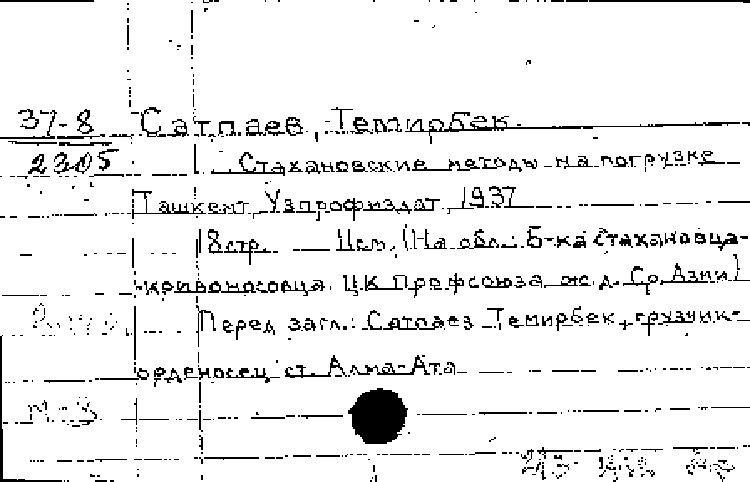 37-8 Сатпаев, Темирбек.
2305 Стахановские методы на погрузке
Ташкент, Узпрофиздат, 1937
18 стр. (На обл.: Б-ка стахановца-
-кривоносовца ЦК Профсоюза ж.д. Ср. Азии)
Перед загл.: Сатпаев Темирбек, грузчик-
орденосец ст. Алма-Ата
М-3